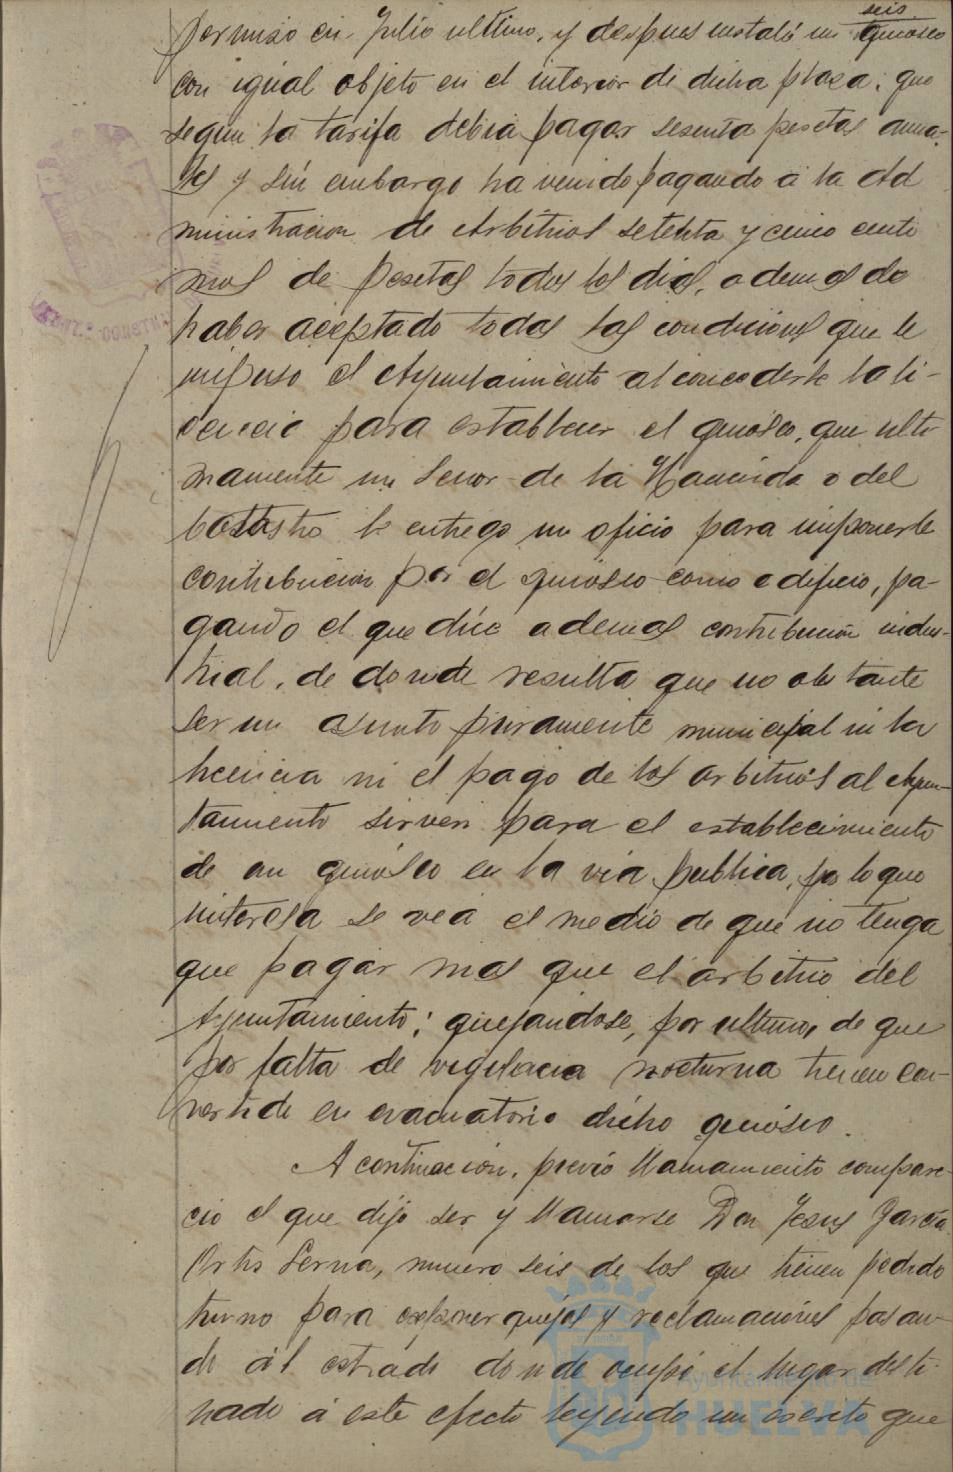 seis
permiso en Julio ultimo, y despues instaló un quiosco
con igual objeto en el interior de dicha plaza; que
segun la tarifa debia pagar sesenta pesetas anua-
les y sin embargo ha venido pagando á la Ad
ministracion de Arbitrios setenta y cinco centi
mos de pesetas todos los dias, ademas de
haber aceptado todas las condiciones que le
impuso el Ayuntamiento al concederle la li-
cencia para establecer el quiosco, que ulti
mamente un Señor de la Hacienda o del
Catastro le entregó un oficio para imponerle
contribucion por el quiosco como edificio, pa-
gando el que dice ademas contribucion indus-
trial, de donde resulta que no obstante
ser un asunto puramente municipal ni la
licencia ni el pago de los arbitrios al Ayun-
tamiento sirven para el establecimiento
de un quiosco en la via publica, por lo que
interesa se vea el medio de que no tenga
que pagar mas que el arbitrio del
Ayuntamiento; quejandose, por ultimo, de que
por falta de vigilacia nocturna tienen con-
vertido en evacuatorio dicho quiosco.
A continuacion, previo llamamiento compare-
cio el que dijo ser y llamarse Don Jesus Garcia
Ortis Serna, numero seis de los que tienen pedido
turno para exponer quejas y reclamaciones pasan-
do al estrado donde ocupó el lugar desti
nado á este efecto leyendo un escrito que
Ayuntamiento de
HUELVA